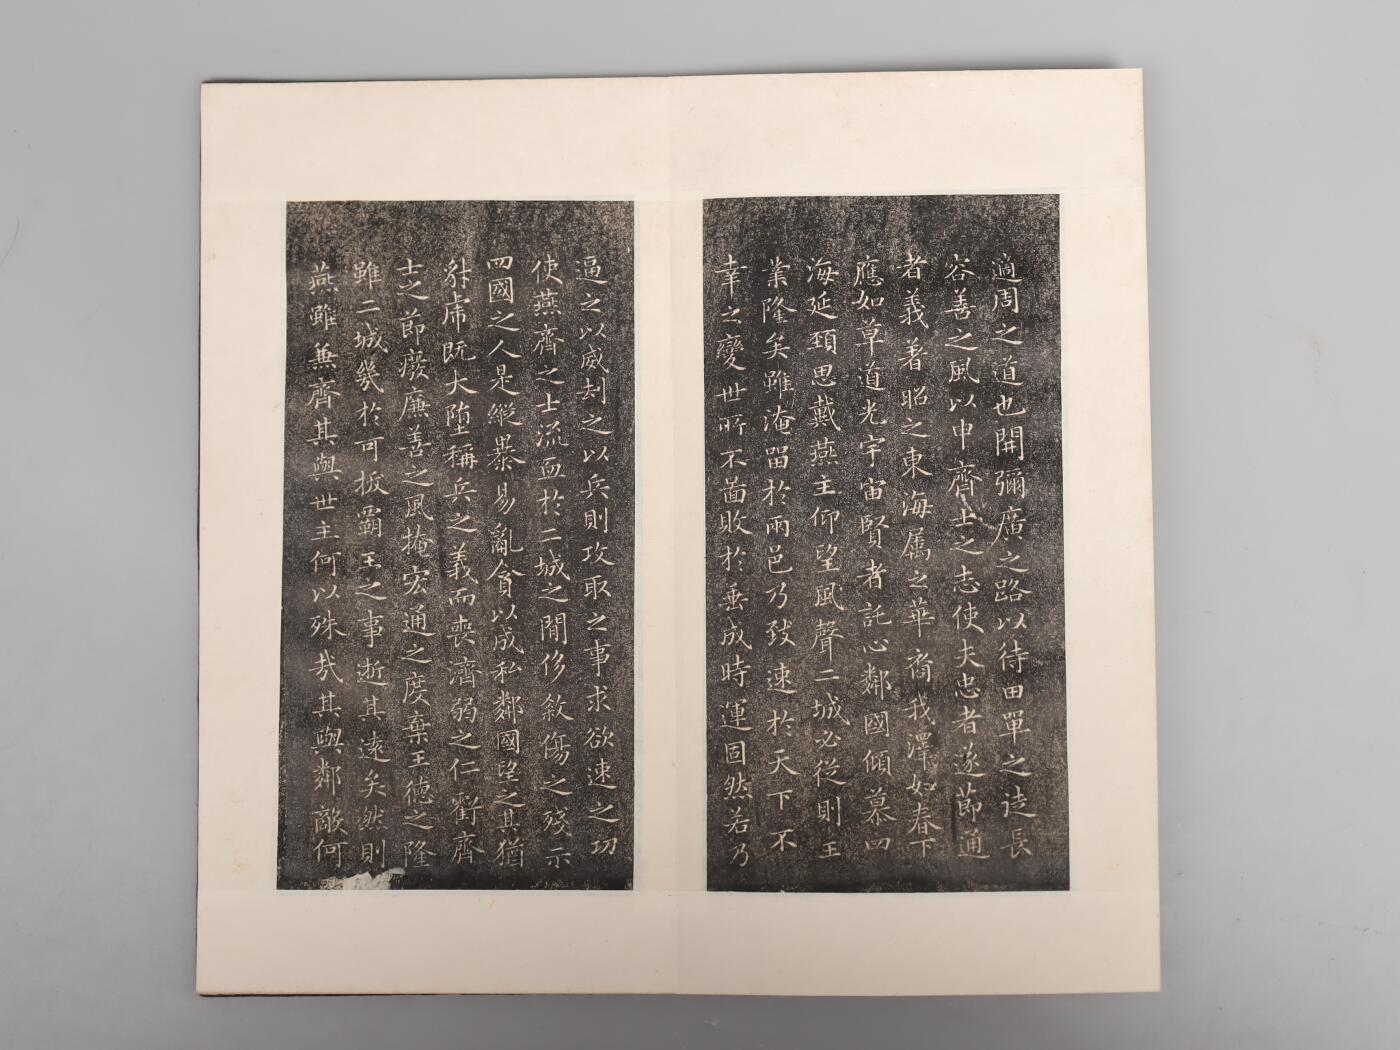 適周之道也開彌廣之路以待田單之徒長
容善之風以申齊士之志使夫忠者遂節通
者義著昭之東海属之華裔我澤如春下
應如草道光宇宙賢者託心鄰國傾慕四
海延頚思戴燕主仰望風聲二城必從則王
業隆矣雖淹留於兩邑乃致速於天下不
幸之變世所不啚敗於垂成時運固然若乃
逼之以威刦之以兵則攻取之事求欲速之功
使燕齊之士流血於二城之閒侈敘傷之殘示
四國之人是縱暴易亂貪以成私鄰國望之其猶
豺虎既大堕稱兵之義而喪濟弱之仁虧齊
士之節癈廉善之風掩宏通之度棄王德之隆
雖二城幾於可拔霸王之事逝其遠矣然則
燕雖兼齊其與世主何以殊哉其與鄰敵何